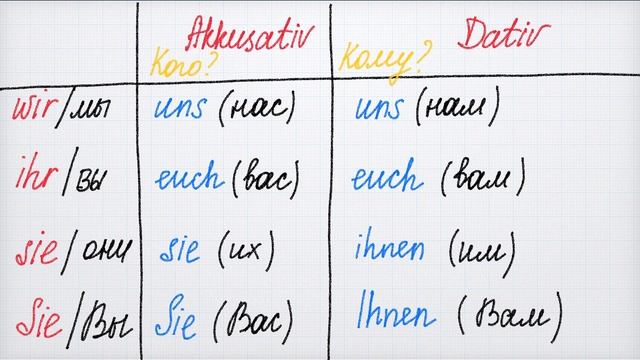 Akkusativ Dativ
Кого? Кому?
wir/мы uns (нас) uns (нам)
ihr/вы euch (вас) euch (вам)
sie/они sie (их) ihnen (им)
Sie/Вы Sie (Вас) Ihnen (Вам)